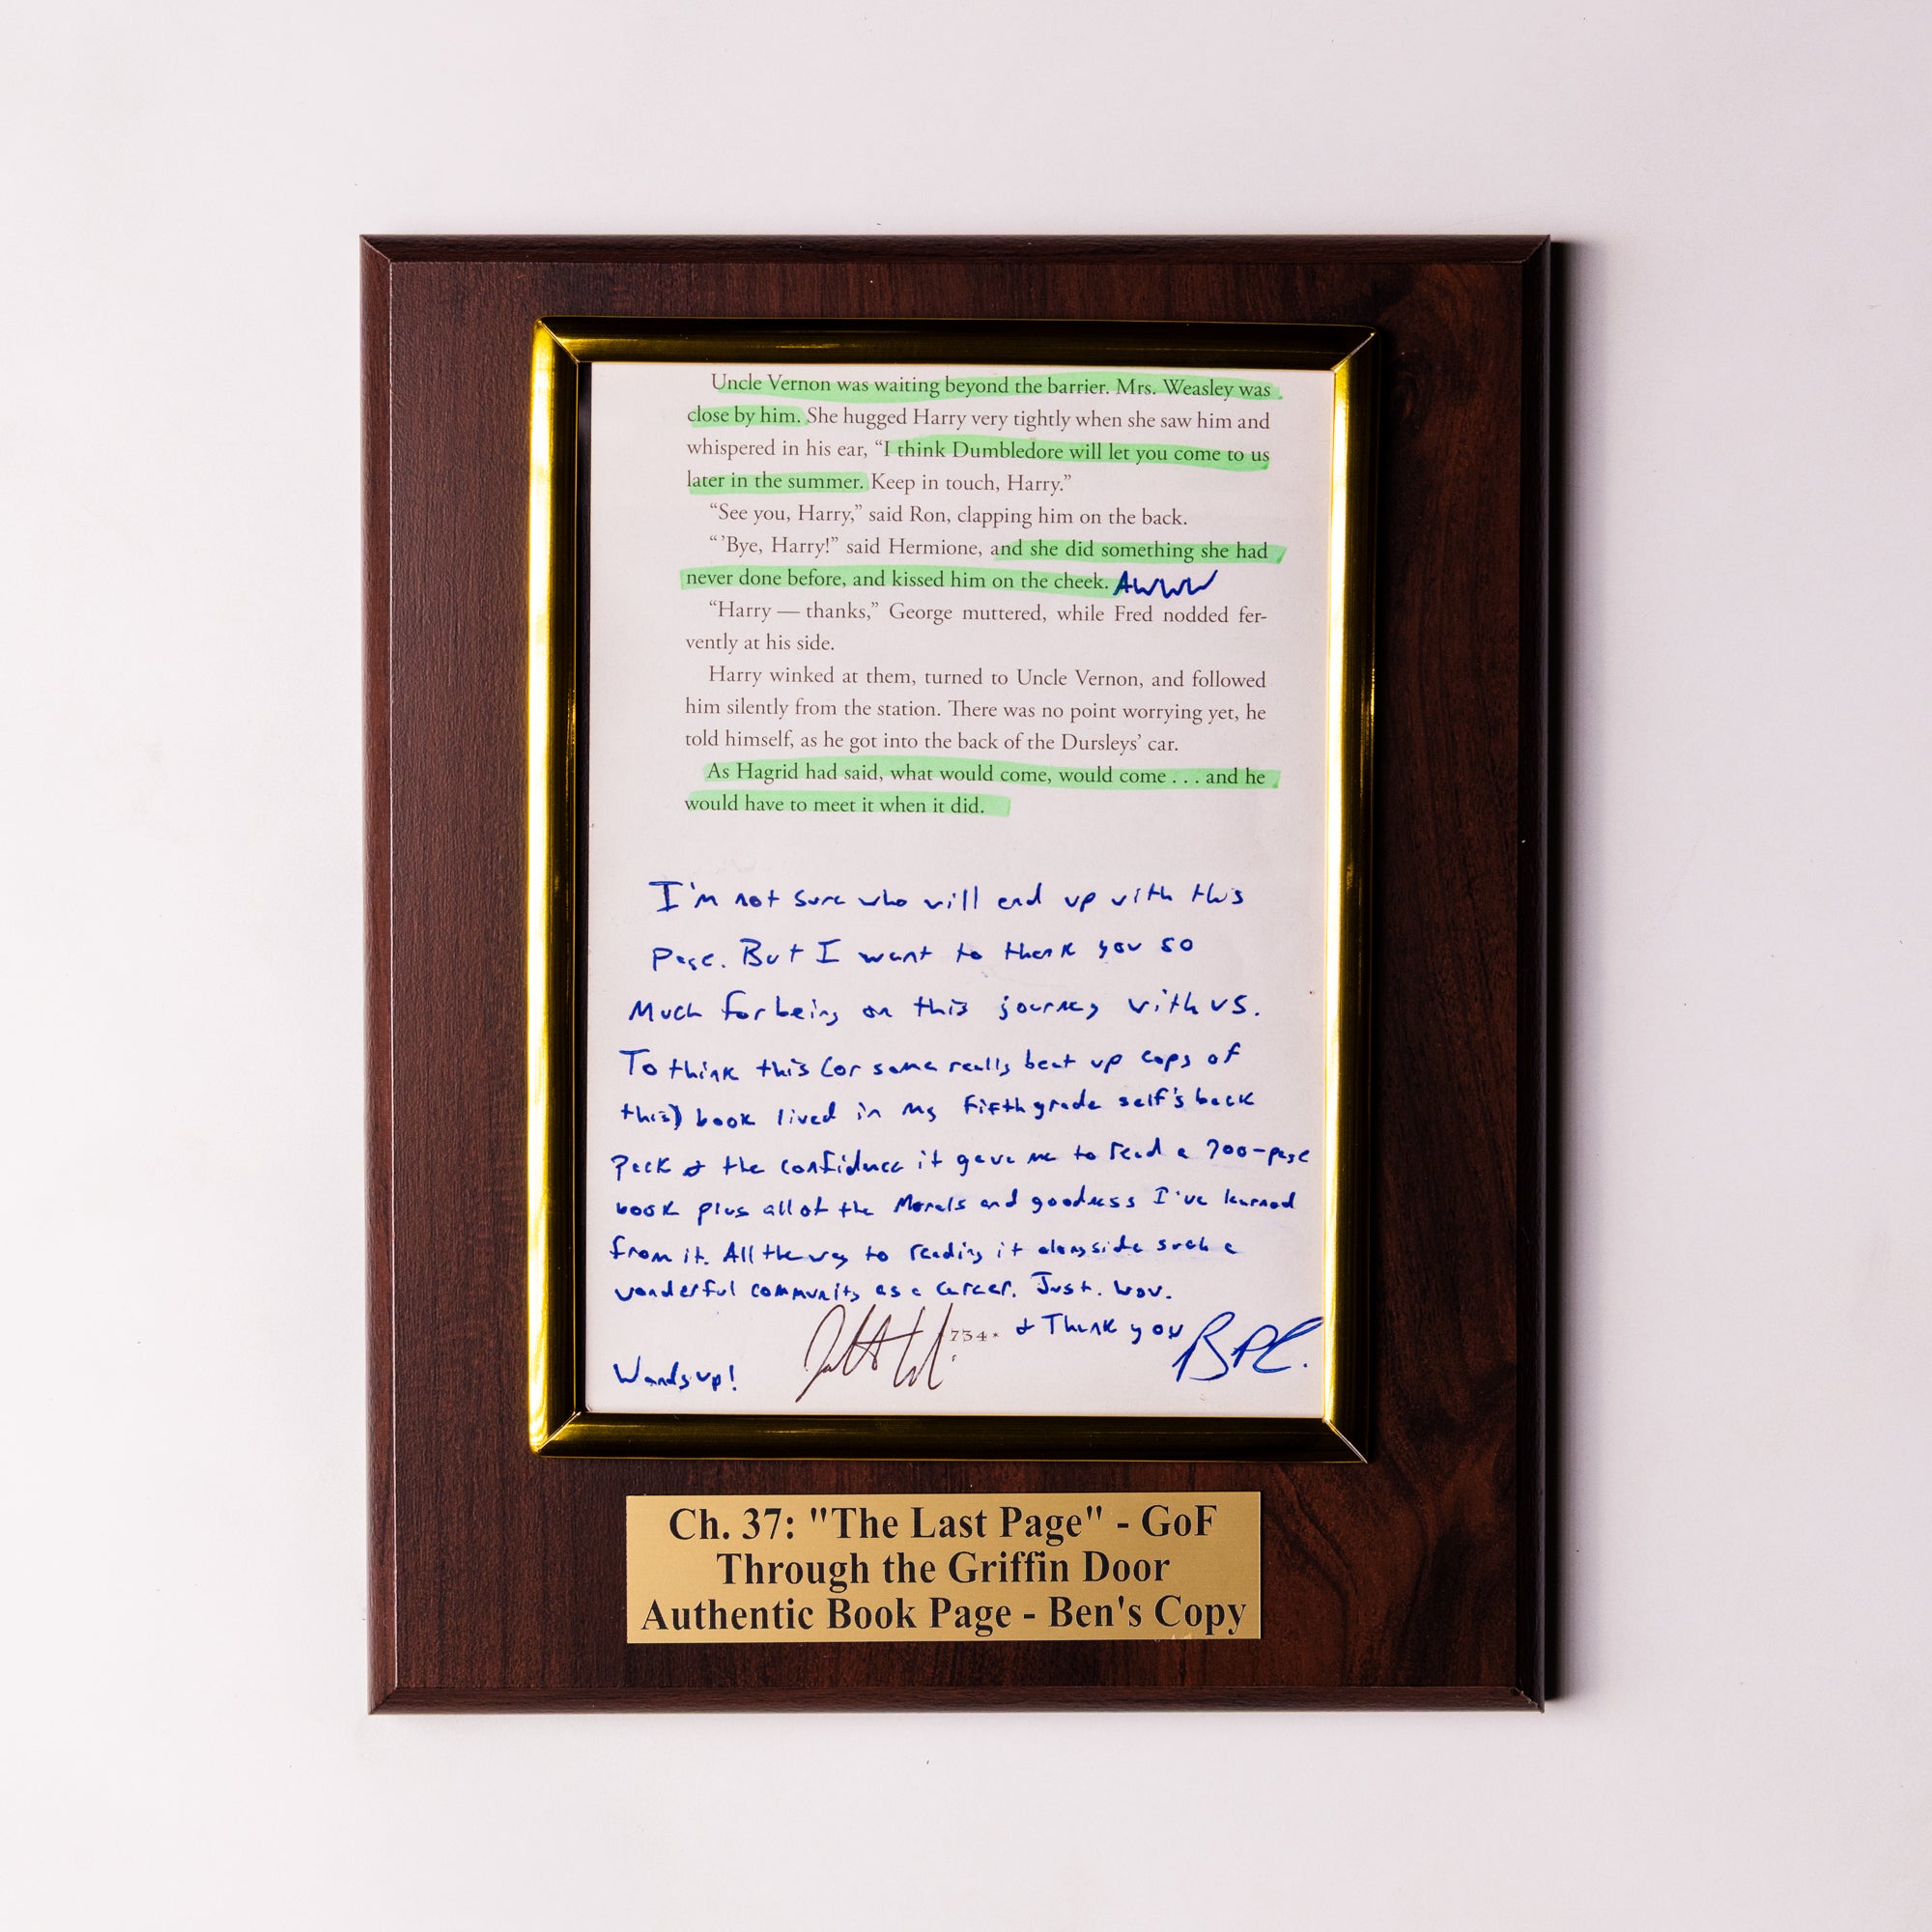 Uncle Vernon was waiting beyond the barrier. Mrs. Weasley was
close by him. She hugged Harry very tightly when she saw him and
whispered in his ear, “I think Dumbledore will let you come to us
later in the summer. Keep in touch, Harry.”
“See you, Harry,” said Ron, clapping him on the back.
“ ’Bye, Harry!” said Hermione, and she did something she had
never done before, and kissed him on the cheek. AWWW
“Harry — thanks,” George muttered, while Fred nodded fer-
vently at his side.
Harry winked at them, turned to Uncle Vernon, and followed
him silently from the station. There was no point worrying yet, he
told himself, as he got into the back of the Dursleys’ car.
As Hagrid had said, what would come, would come . . . and he
would have to meet it when it did.
I'm not sure who will end up with this
page. But I want to thank you so
much for being on this journey with us.
To think this (or some really beat up copy of
this) book lived in my fifth grade self's back
pack & the confidence it gave me to read a 700-page
book plus all of the morals and goodness I've learned
from it. All the way to reading it alongside such a
wonderful community as a career. Just. Wow.
734* & Thank you
Wands up!
Ch. 37: "The Last Page" - GoF
Through the Griffin Door
Authentic Book Page - Ben's Copy